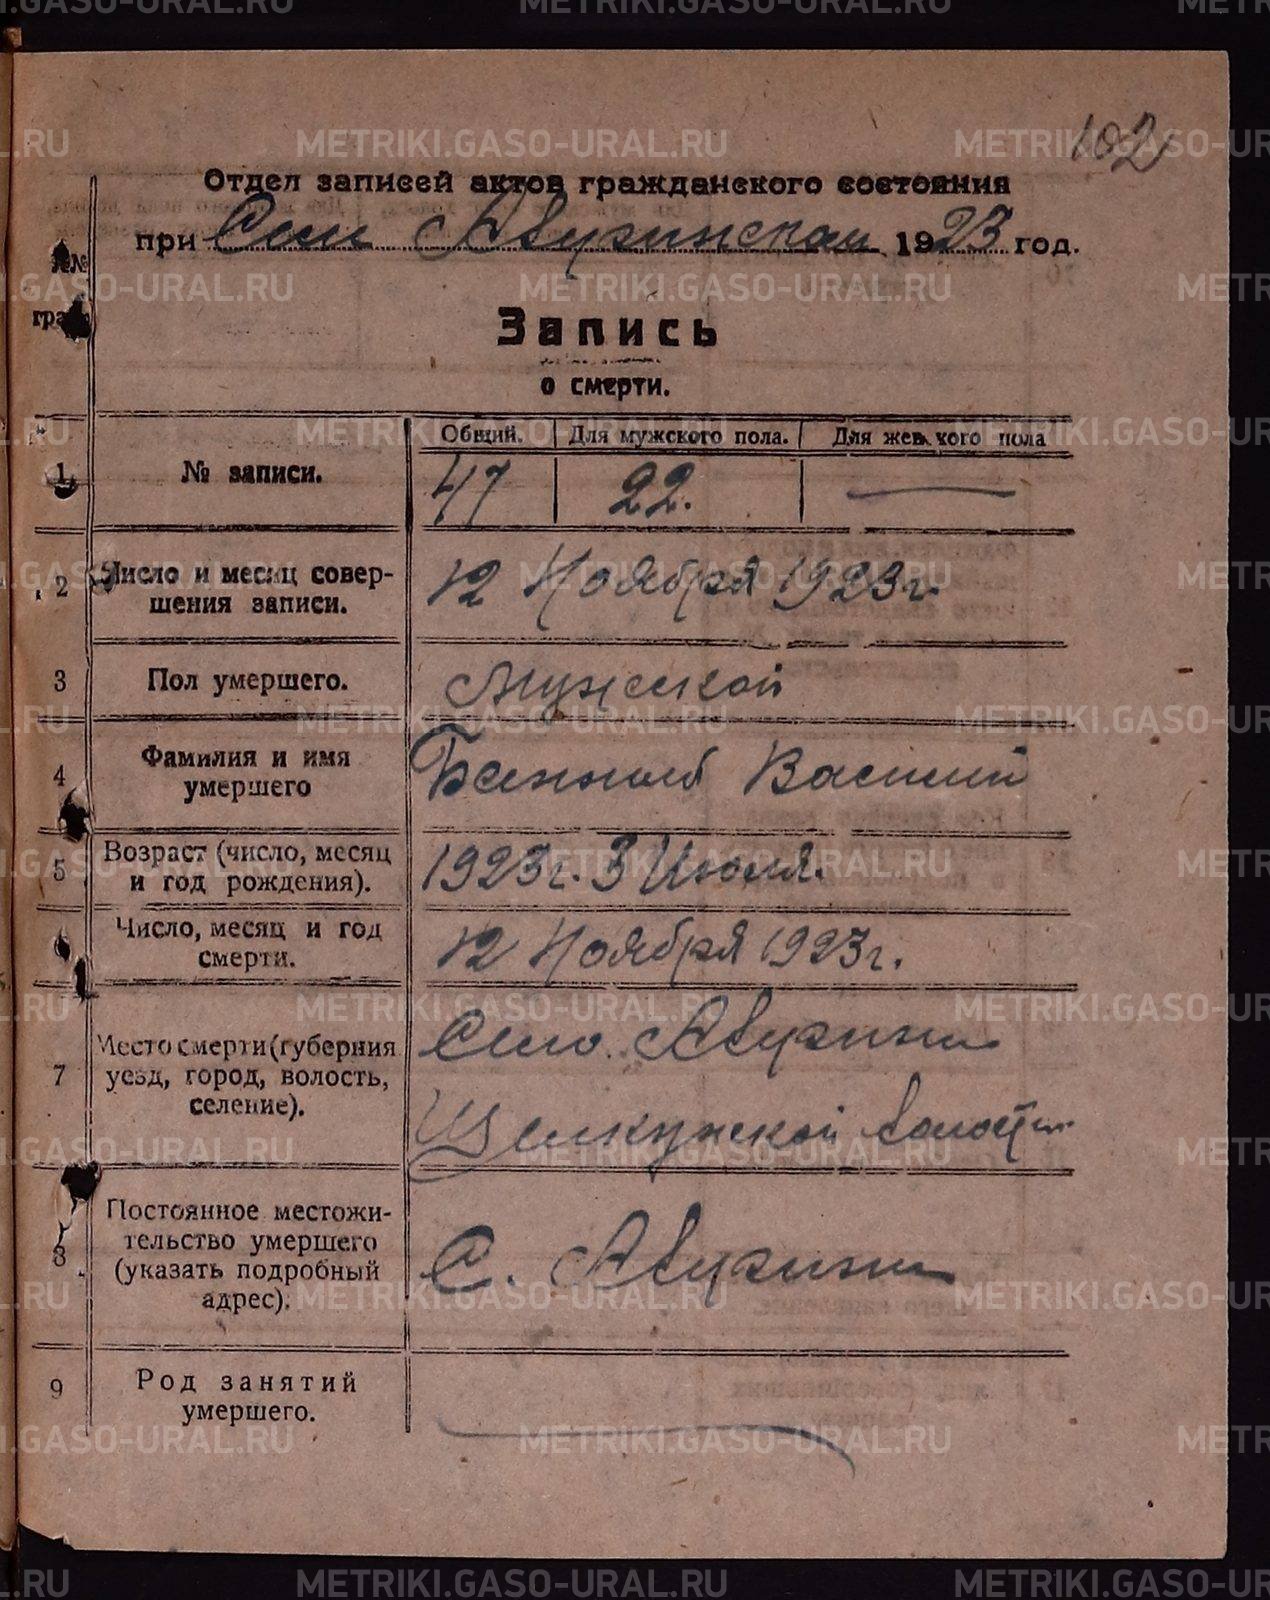 102
Отдел записей актов гражданского состояния
при Сели Авузинском 1923 год.
№№
граф
Запись
о смерти.
Общий. Для мужского пола. Для женского пола
1 № записи. 47 22. —
2 Число и месяц совер-
шения записи.
12 Ноября 1923 г.
3 Пол умершего. Мужской
4 Фамилия и имя
умершего
Василий
5 Возраст (число, месяц
и год рождения).
1923 г. 3 Июля.
6 Число, месяц и год
смерти.
12 Ноября 1923 г.
7 Место смерти (губерния
уезд, город, волость,
селение).
Село
Щелкунской волости
8 Постоянное местожи-
тельство умершего
(указать подробный
адрес).
С.
9 Род занятий
умершего.
METRIKI.GASO-URAL.RU